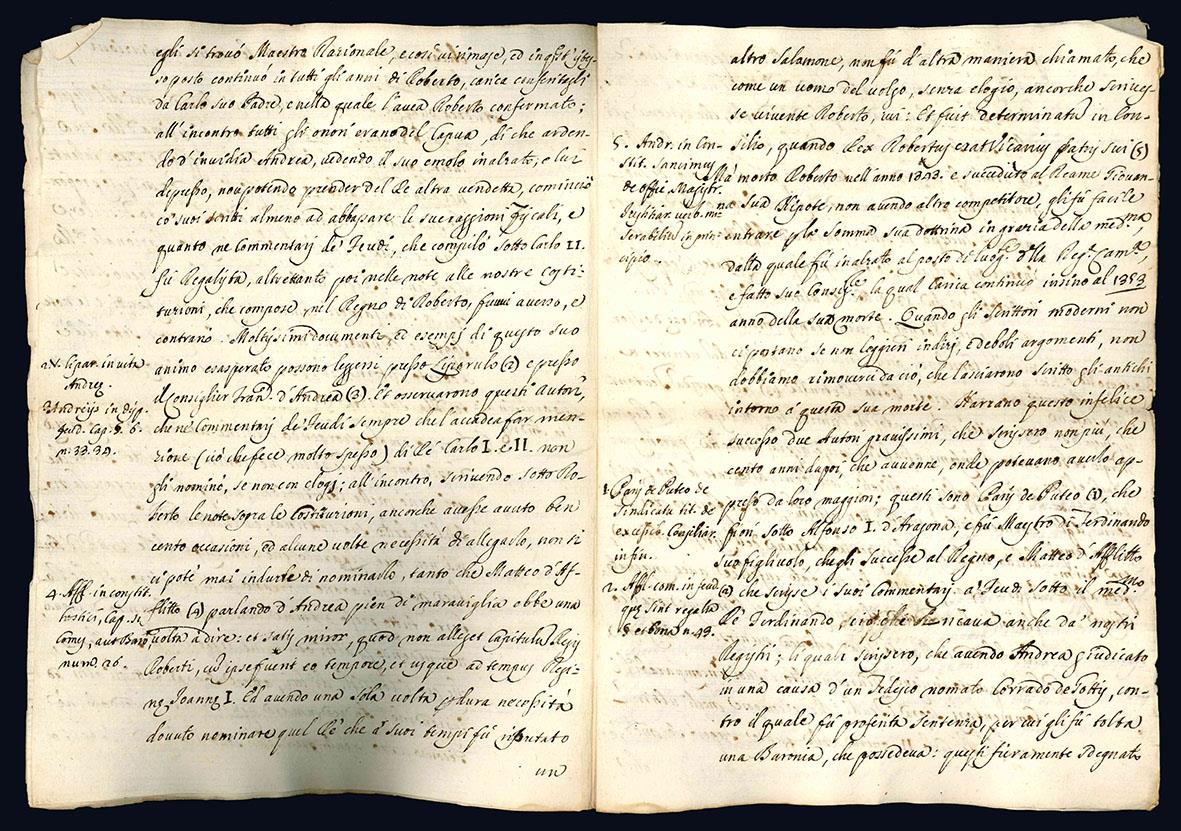 egli si trovó Maestro Razionale, e cosi vi rimase, ed in qst' istes-
so posto continuó in tutti gli anni di Roberto, carica
da Carlo suo Padre, e nella quale l'avea Roberto confermato;
all'incontro tutti gli onori erano del Capua, di che arden-
do d'invidia Andrea, vedendo il suo emolo inalzato, e lui
depresso, non potendo prender del Ré altra vendetta, cominció
co' suoi scritti almeno ad abbassare le sue raggioni Fiscali, e
quanto ne Commentarj de' Feudi, che compiló sotto Carlo II.
fú Regalista, altrettanto poi nelle note alle nostre costi-
tuzioni, che compose nel Regno di Roberto, fuvvi averso, e
contrario. Moltissimi documenti, ed esempj di questo suo
2. N. lipar. in vita
Andreę.
animo esasperato possono leggersi presso Liparulo (2) e presso
3. Andreys in disp.
feud. Cap. 5. 6.
n. 33. 34.
il Consiglier Fran. d'Andrea (3). Et osservarono questi autori,
che ne' Commentarj de' Feudi sempre che l'accadea far men-
zione (ció che fece molto spesso) di Ré Carlo I. e II. non
gli nominó, se non con elogj; all'incontro, scrivendo sotto Ro-
berto le note sopra le Costituzioni, ancorche avesse avuto ben
cento occasioni, ed alcune volte necessitá di allegarlo, non si
ci poté mai indurre di nominarlo, tanto che Matteo d'Af-
4. Aff. in constit.
hostici, Cap. si
Comes, aut Baro
num. 26.
flitto (4) parlando d'Andrea pien di maraviglia ebbe una
volta a dire: et satis miror, quod non alleget Capitula Regis
Roberti, cum ipse fuerit eo tempore, et usque ad tempus Regi-
nę Joannę I. Ed avendo una sola volta p dura necessitá
dovuto nominare quel Ré che a' suoi tempi fú riputato
un
altro Salamone, non fú d'altra maniera chiamato, che
come un uomo del volgo, senza elogio, ancorche scrives-
se vivente Roberto, ivi: Et fuit determinatu in Con-
5. Andr. in Con-
stit. Sancimus
de offic. Magistr.
Justitiar. verb. mi-
serabiliu in prin-
cipio.
silio, quando Rex Robertus erat Vicarius Patris sui (5)
Ma morto Roberto nell'anno 1343. e succeduto al Reame Giovan-
na sua Nipote, non avendo altro competitore, gli fú facile
entrare p la somma sua dottrina in grazia della medma,
dalla quale fú inalzato al posto di luogte della Rega Camra,
e fatto suo Consigre, la qual carica continuó insino al 1353
anno della sua morte. Quando gli Scrittori moderni non
ci portano se non leggieri indizj, e deboli argomenti, non
dobbiamo rimoverci da ció, che lasciarono scritto gli antichi
intorno á questa sua morte. Narrano questo infelice
successo due Autori gravissimi, che scrissero non piú, che
cento anni dapoi, che avvenne, onde potevano averlo ap-
1. Paris de Puteo de
Sindicatu tit. de
excessib. Consiliar.
in fin.
preso da loro maggiori; questi sono Paris de Puteo (1), che
fiori sotto Alfonso I. d'Aragona, e fú Maestro di Ferdinando
suo figlivolo, che gli successe al Regno, e Matteo d'Afflitto
2. Affl. com. in feud.
quę sint regalia
n. 49.
(2) che scrisse i suoi Commentarj a' Feudi sotto il medmo
Ré Ferdinando, anche da' nostri
Registri; li quali scrissero, che avendo Andrea giudicato
in una causa d'un Tedesco nomato Corrado de Gottis, con-
tro il quale fú proferita sentenza, per cui gli fú tolta
una Baronia, che possedeva: questi fieramente sdegnato